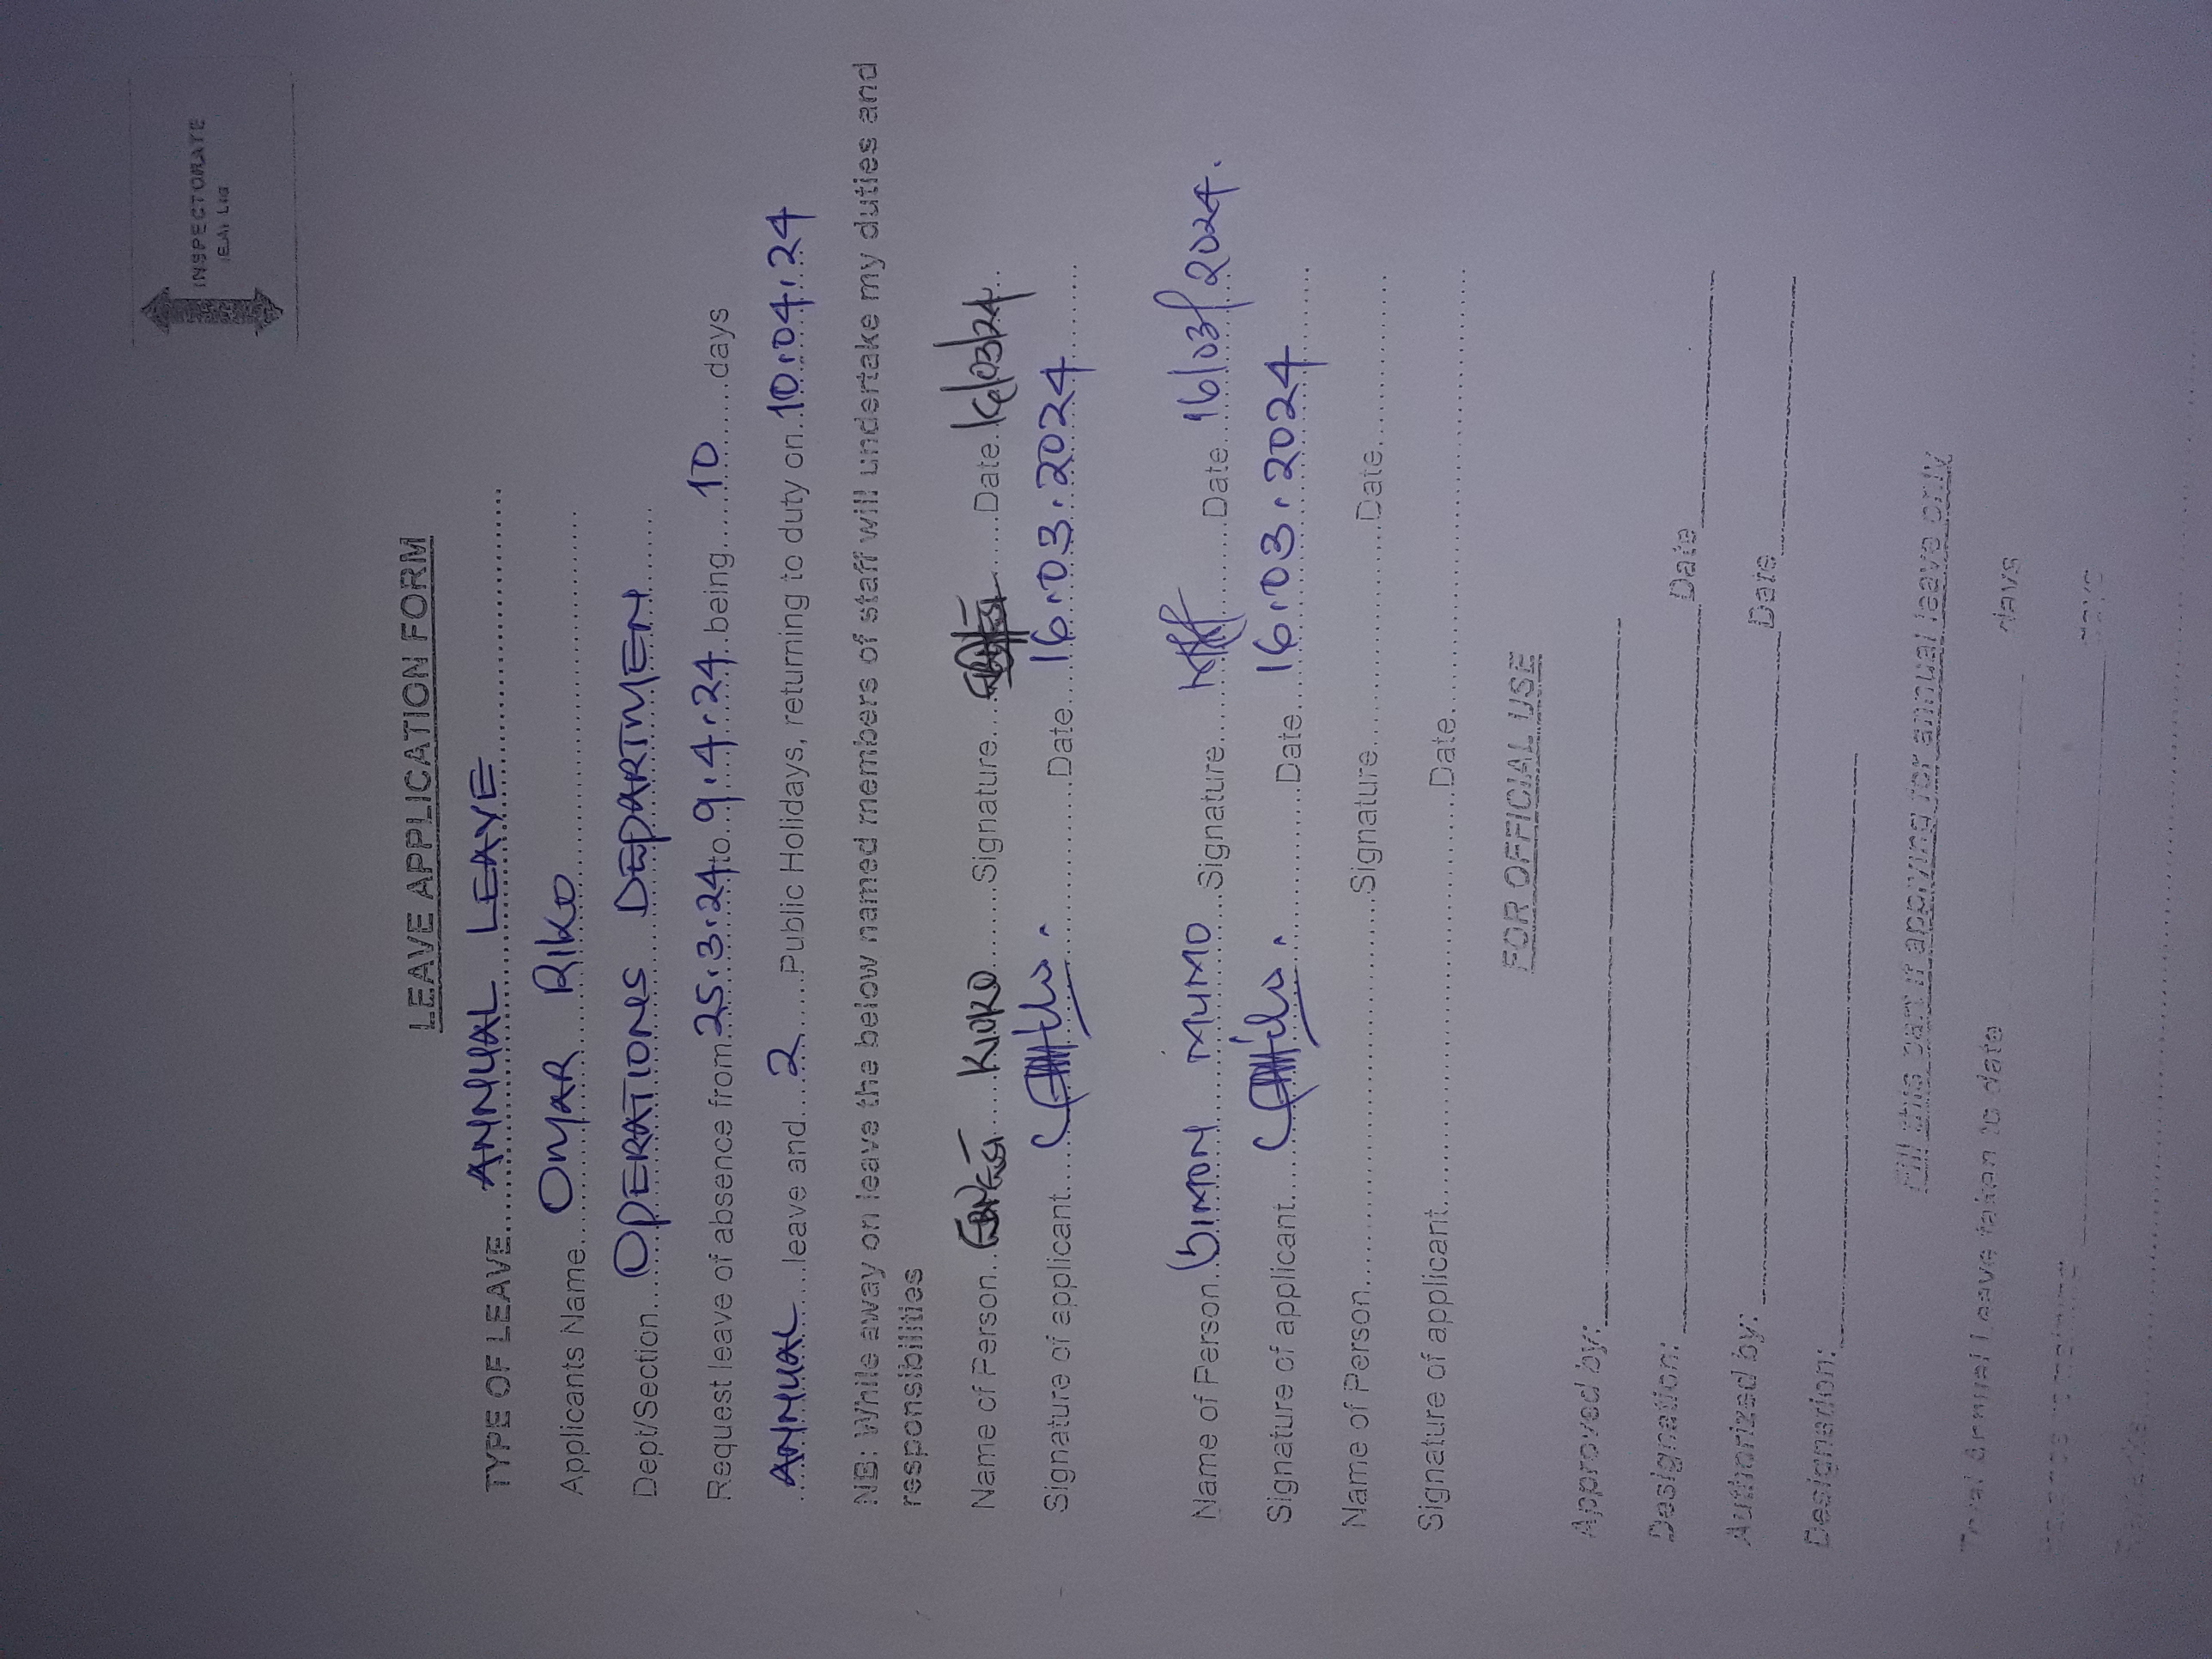 INSPECTORATE
(E.A) Ltd
LEAVE APPLICATION FORM
TYPE OF LEAVE....ANNUAL LEAVE....................
Applicants Name...OMAR RIKO....................
Dept/Section...OPERATIONS DEPARTMEN.......
Request leave of absence from 25.3.24 to 9.4.24 being....10....days
ANNUAL....leave and....2....Public Holidays, returning to duty on 10.04.24
NB: While away on leave the below named members of staff will undertake my duties and
responsibilities
Name of Person..ERNEST KIOKO........Signature...........Date 16/03/24
Signature of applicant....................Date....16.03.2024........
Name of Person..SIMON MUMO...Signature...........Date 16/03/2024.
Signature of applicant....................Date....16.03.2024........
Name of Person....................Signature....................Date...............
Signature of applicant....................Date....................
FOR OFFICIAL USE
Approved by:____________________
Designation: ____________________Date__________
Authorized by: ____________________Date__________
Designation:____________________
Fill this part if applying for annual leave only
Total Annual Leave taken to date __________ days
Balance remaining __________ days
Remarks....................